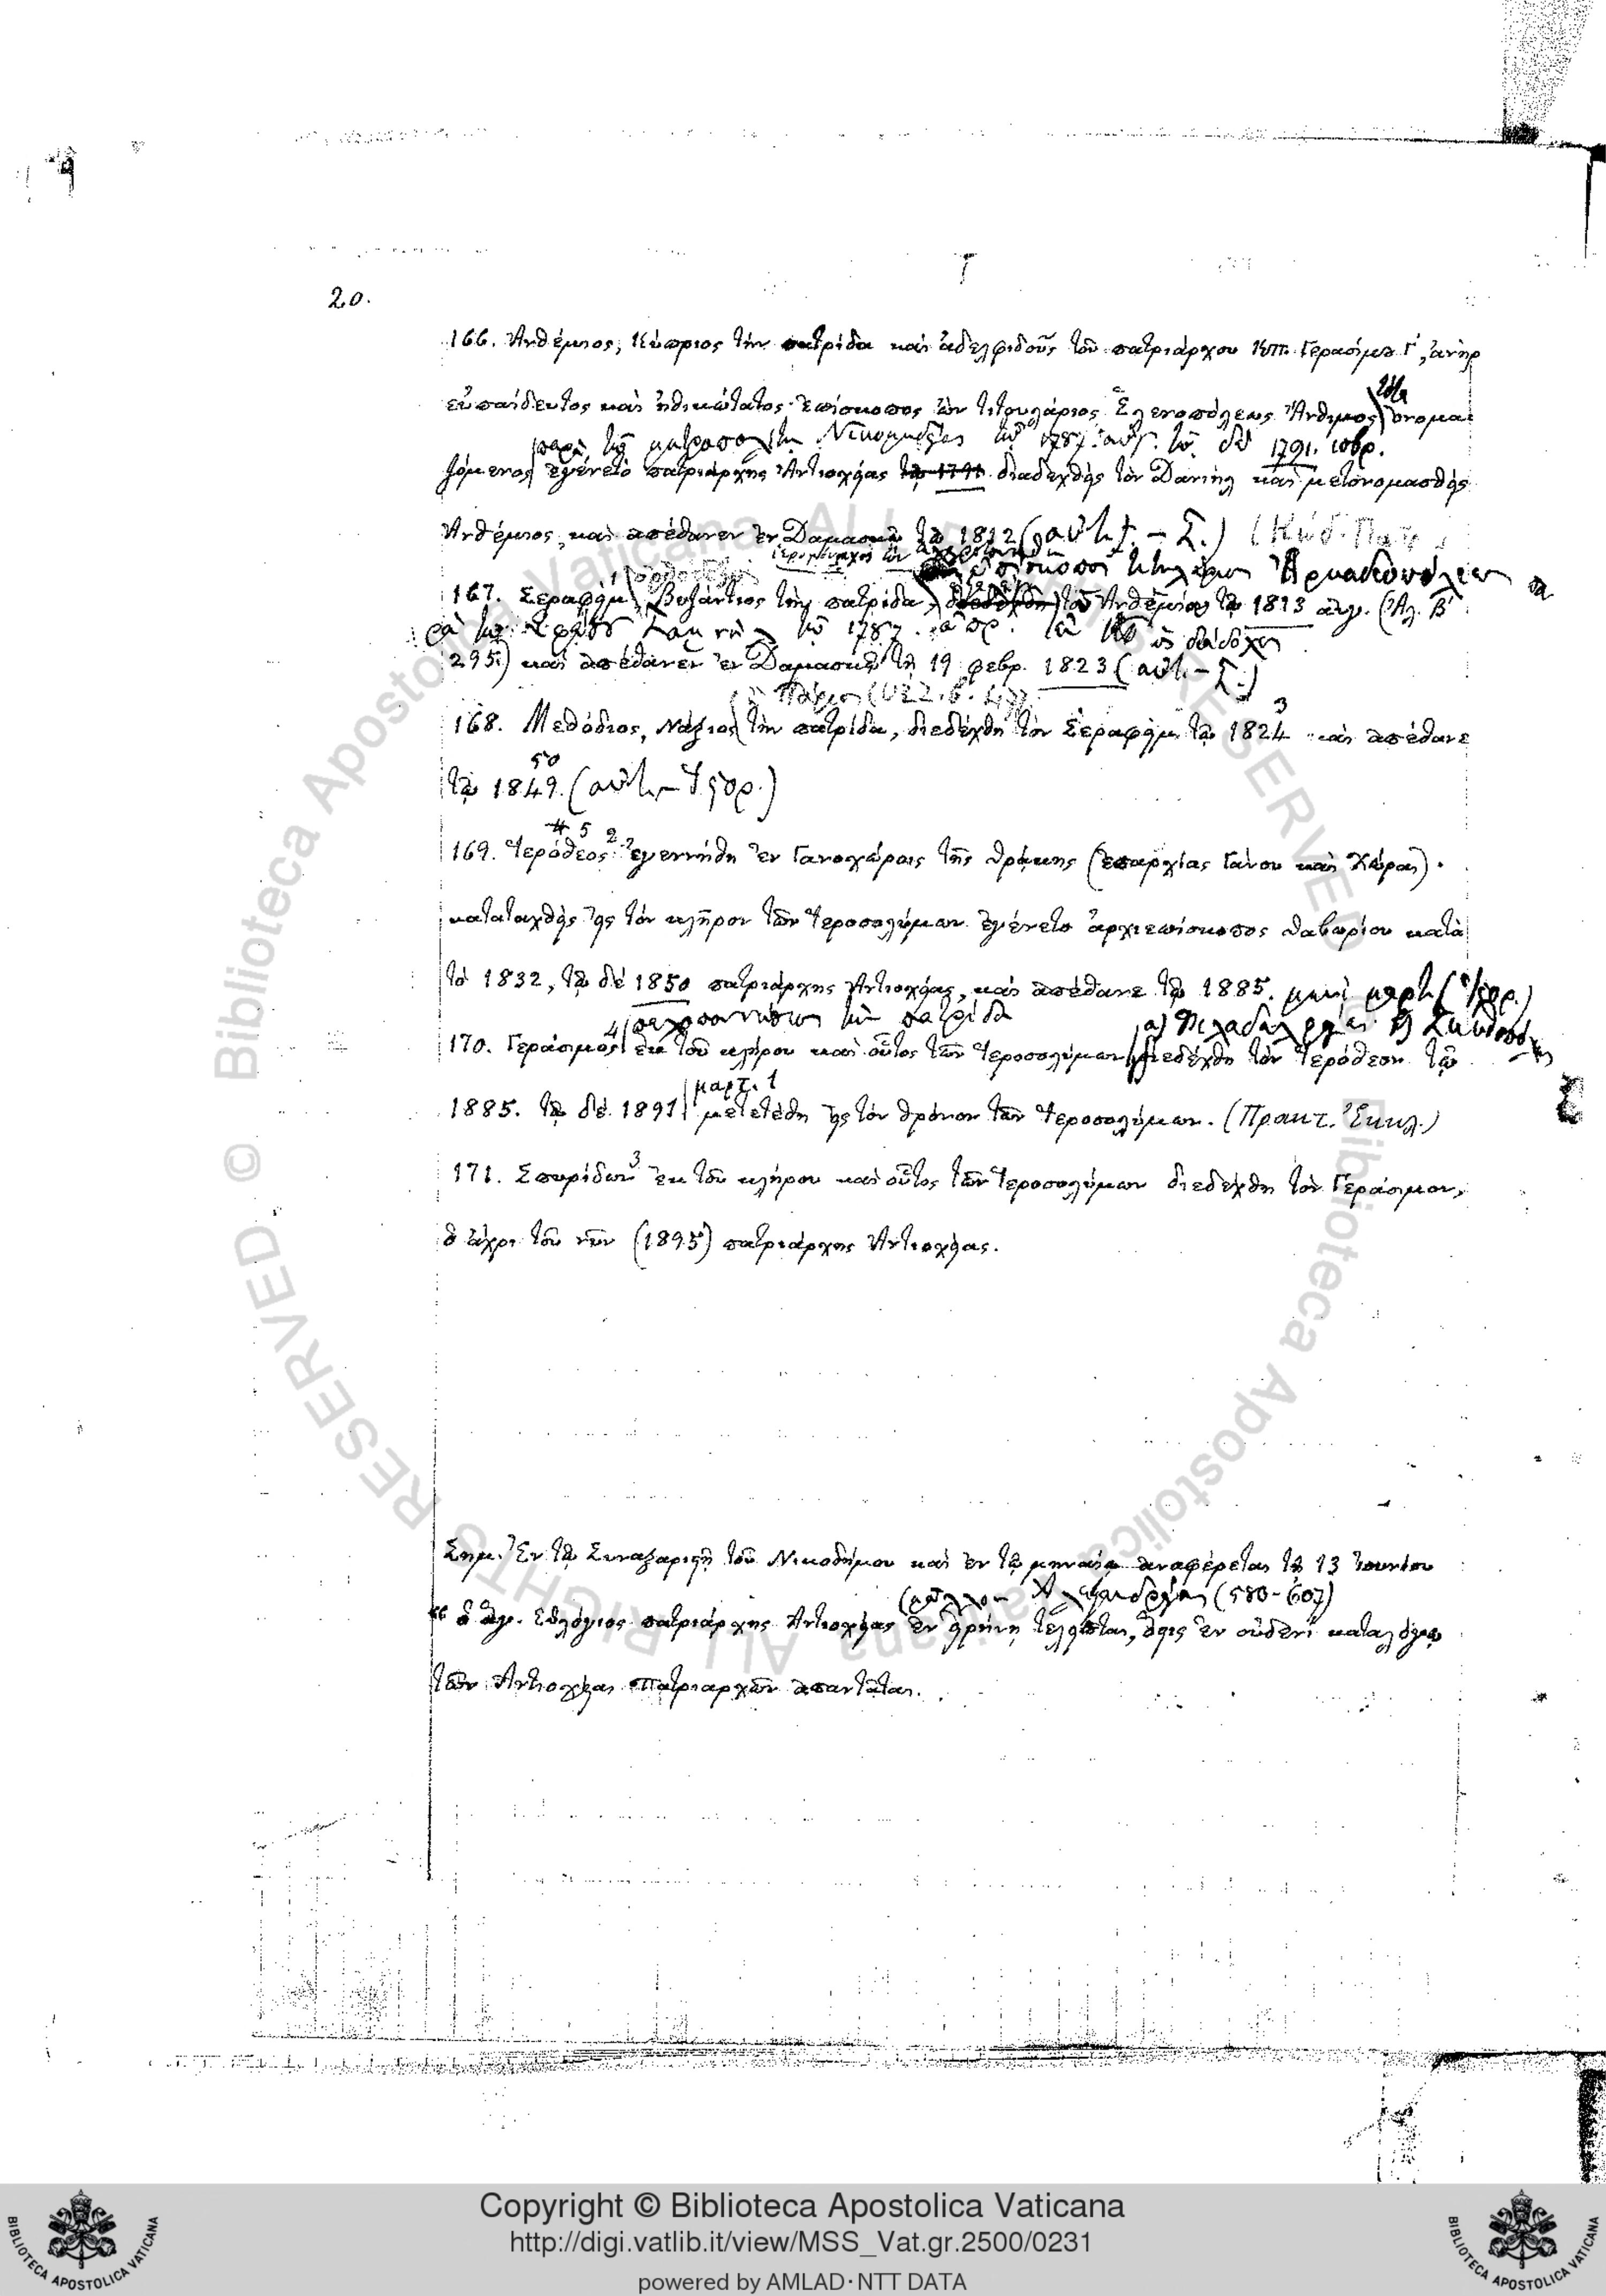 20.
166. Ἀνθέμιος, Κύπριος τὴν πατρίδα καὶ ἀδελφιδοῦς τοῦ πατριάρχου Κπ. Γερασίμου Γ΄, ἀνὴρ
εὐπαίδευτος καὶ ἠθικώτατος· ἐπίσκοπος ὢν τιτουλάριος Ἑλενοπόλεως Ἄνθιμος τότε ὀνομα
παρὰ τῷ μητροπολίτῃ Νικομηδείας τῷ 1787 αὐγ. τῷ δὲ 1791
ζόμενος ἐγένετο πατριάρχης Ἀντιοχείας τῷ 1791 διαδεχθεὶς τὸν Δανιὴλ καὶ μετονομασθεὶς
Ἀνθέμιος, καὶ ἀπέθανεν ἐν Δαμασκῷ τῷ 1812 (αὐτ. – Σ.) (Κώδ. Πατρ.
ἱερομόναχος ὢν ἐπίσκοπος Ἀρκαδιουπόλεως πα
167. Σεραφὴμ Βυζάντιος τὴν πατρίδα, διεδέχθη τὸν Ἀνθέμιον τῷ 1813 αὐγ. (Ἀλ. Β΄
ρὰ τῷ 1787 ὡς διάδοχος
295.) καὶ ἀπέθανεν ἐν Δαμασκῷ τῇ 19 φεβρ. 1823 (αὐτ. – Σ.)
3
168. Μεθόδιος, Νάξιος τὴν πατρίδα, διεδέχθη τὸν Σεραφὴμ τῷ 1824 καὶ ἀπέθανε
50
τῷ 1849. (αὐτ. – Ἱστορ.)
4 5 2
169. Ἱερόθεος ἐγεννήθη ἐν Γανοχώροις τῆς Θράκης (ἐπαρχίας Γάνου καὶ Χώρας)·
καταταχθεὶς εἰς τὸν κλῆρον τῶν Ἱεροσολύμων ἐγένετο ἀρχιεπίσκοπος Θαβωρίου κατὰ
τὸ 1832, τῷ δὲ 1850 πατριάρχης Ἀντιοχείας, καὶ ἀπέθανε τῷ 1885. μηνὶ μαρτ. (Ἱστορ.)
πελοποννήσιος τὴν πατρίδα
4
170. Γεράσιμος ἐκ τοῦ κλήρου καὶ οὗτος τῶν Ἱεροσολύμων διεδέχθη τὸν Ἱερόθεον τῷ
μαρτ. 1
1885. τῷ δὲ 1891 μετετέθη εἰς τὸν θρόνον τῶν Ἱεροσολύμων. (Πρακτ. Ἐκκλ.)
171. Σπυρίδων 3 ἐκ τοῦ κλήρου καὶ οὗτος τῶν Ἱεροσολύμων διεδέχθη τὸν Γεράσιμον,
ὁ ἄχρι τοῦ νῦν (1895) πατριάρχης Ἀντιοχείας.
Σημ. Ἐν τῷ Συναξαριστῇ τοῦ Νικοδήμου καὶ ἐν τῷ μηναίῳ ἀναφέρεται τῇ 13 Ἰουνίου
(μᾶλλον Ἀλεξανδρείας (580-607)
"ὁ ἅγ. Εὐλόγιος πατριάρχης Ἀντιοχείας ἐν εἰρήνῃ τελειοῦται, ὅστις ἐν οὐδενὶ καταλόγῳ
τῶν Ἀντιοχείας Πατριαρχῶν ἀπαντᾶται.
Copyright © Biblioteca Apostolica Vaticana
http://digi.vatlib.it/view/MSS_Vat.gr.2500/0231
powered by AMLAD·NTT DATA